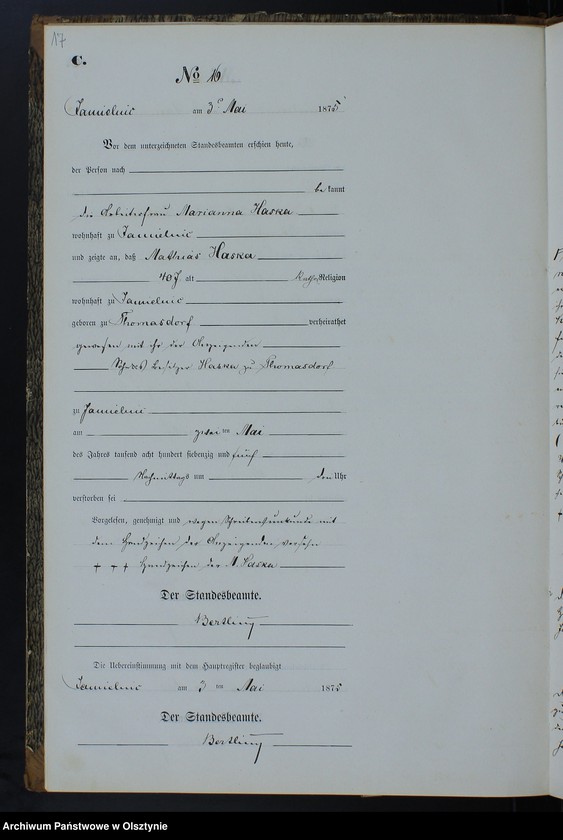 17
C.
No 16
Jamielnic am 3n Mai 1875
Vor dem unterzeichneten Standesbeamten erschien heute,
der Person nach
bekannt
die Arbeitsfrau Marianna Kaska
wohnhaft zu Jamielnic
und zeigte an, daß Mathias Kaska
40 J. alt Kathl. Religion
wohnhaft zu Jamielnic
geboren zu Thomasdorf verheirathet
gewesen mit ihr der Anzeigenden
Sohn des Besitzer Kaska zu Thomasdorf
zu Jamielnic
am zwei ten Mai
des Jahres tausend acht hundert siebenzig und fünf
Nachmittags um Uhr
verstorben sei
Vorgelesen, genehmigt und wegen Schreibensunkunde mit
dem Handzeichen der Anzeigenden versehn
+ + + Handzeichen der M. Kaska
Der Standesbeamte.
Bertling
Die Uebereinstimmung mit dem Hauptregister beglaubigt
Jamielnic am 3 ten Mai 1875
Der Standesbeamte.
Bertling
Archiwum Państwowe w Olsztynie